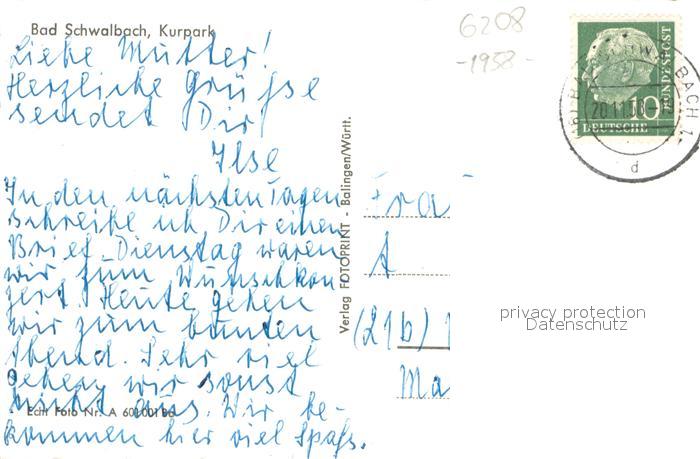 Bad Schwalbach, Kurpark
6208
-1958-
Liebe Mutter!
Herzliche Grüsse
sendet Dir
Ilse
In den nächsten Tagen
schreibe ich Dir einen
Brief. Dienstag waren
wir zum Wunschkon-
zert. Heute gehen
wir zum bunten
Abend. Sehr viel
gehen wir sonst
nicht aus. Wir be-
kommen hier viel Spaß.
Echt Foto Nr. A
Verlag FOTOPRINT - Balingen/Württ.
Fra
A
(21b)
Ma
DEUTSCHE
BUNDESPOST
10
BACH 1
d
privacy protection
Datenschutz